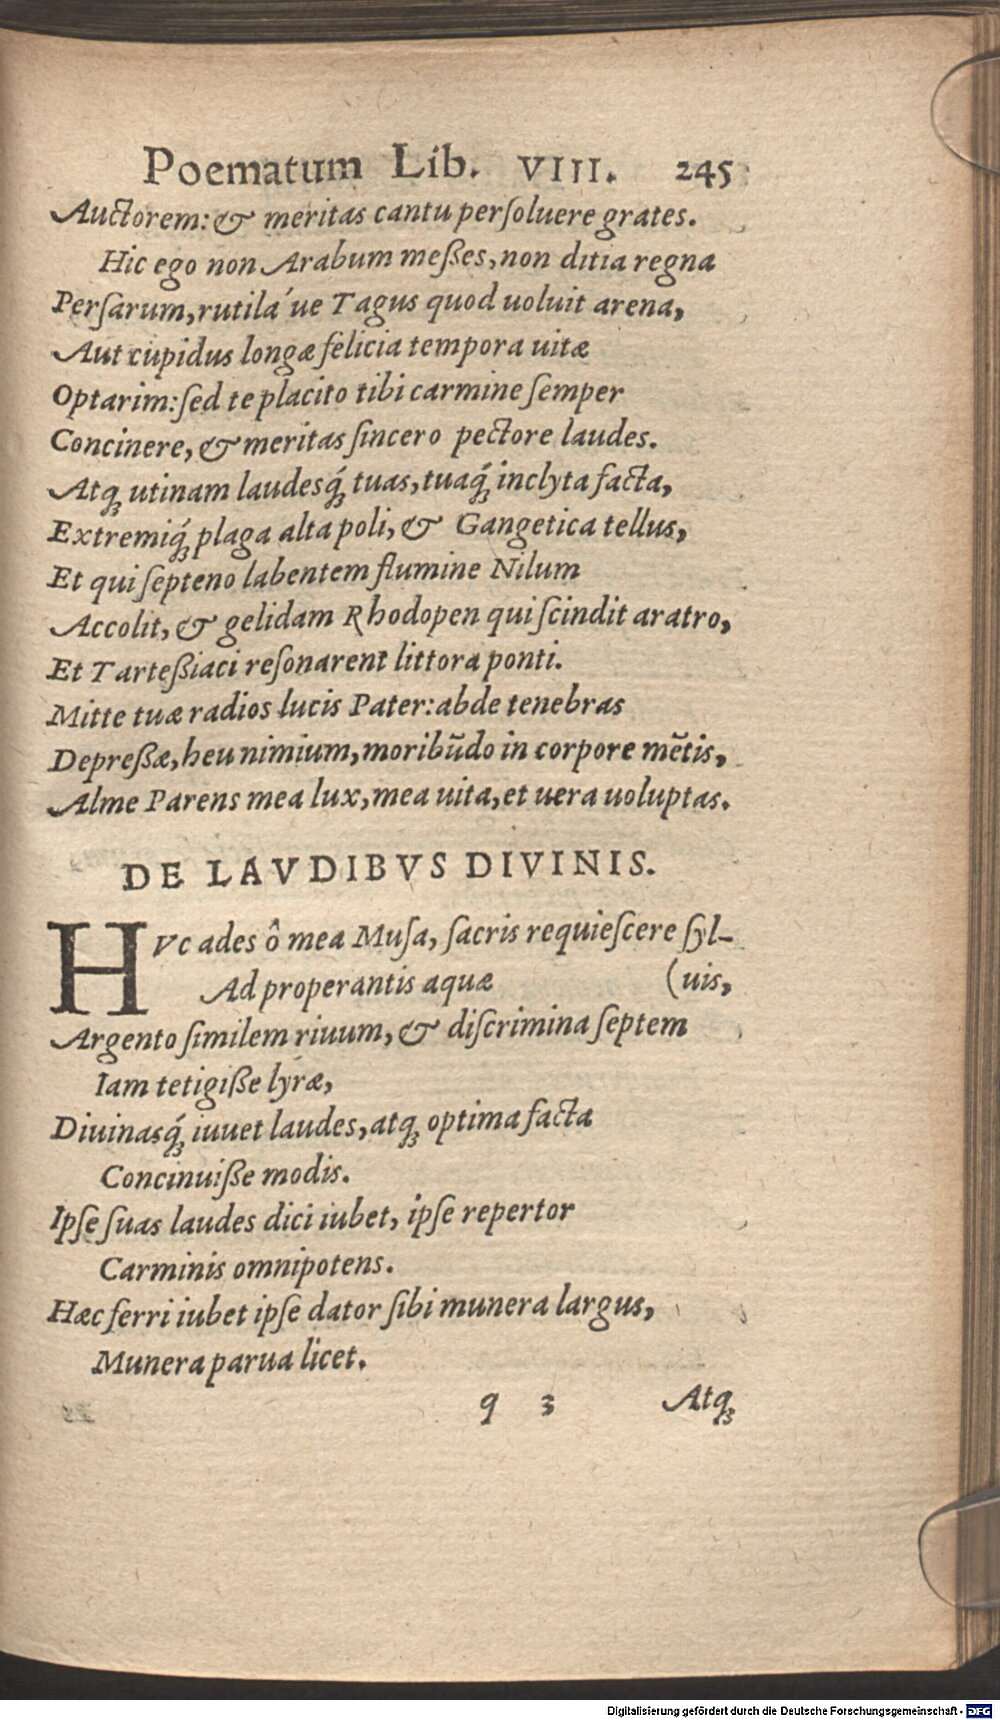 Poematum Lib. VIII. 245
Auctorem: & meritas cantu perſoluere grates.
Hic ego non Arabum meßes, non ditia regna
Perſarum, rutilá ue Tagus quod uoluit arena,
Aut cupidus longæ felicia tempora uitæ
Optarim: ſed te placito tibi carmine ſemper
Concinere, & meritas ſincero pectore laudes.
Atq; utinam laudesq́; tuas, tuaq́; inclyta facta,
Extremiq́; plaga alta poli, & Gangetica tellus,
Et qui ſepteno labentem flumine Nilum
Accolit, & gelidam Rhodopen qui ſcindit aratro,
Et Tarteßiaci reſonarent littora ponti.
Mitte tuæ radios lucis Pater: abde tenebras
Depreßæ, heu nimium, moribūdo in corpore mētis,
Alme Parens mea lux, mea uita, et uera uoluptas.
DE LAVDIBVS DIVINIS.
HVc ades ô mea Muſa, ſacris requieſcere ſyl-
Ad properantis aquæ (uis,
Argento ſimilem riuum, & diſcrimina ſeptem
Iam tetigiße lyræ,
Diuinasq́; iuuet laudes, atq; optima facta
Concinuiße modis.
Ipſe ſuas laudes dici iubet, ipſe repertor
Carminis omnipotens.
Hæc ferri iubet ipſe dator ſibi munera largus,
Munera parua licet.
q 3 Atq;
Digitalisierung gefördert durch die Deutsche Forschungsgemeinschaft - DFG